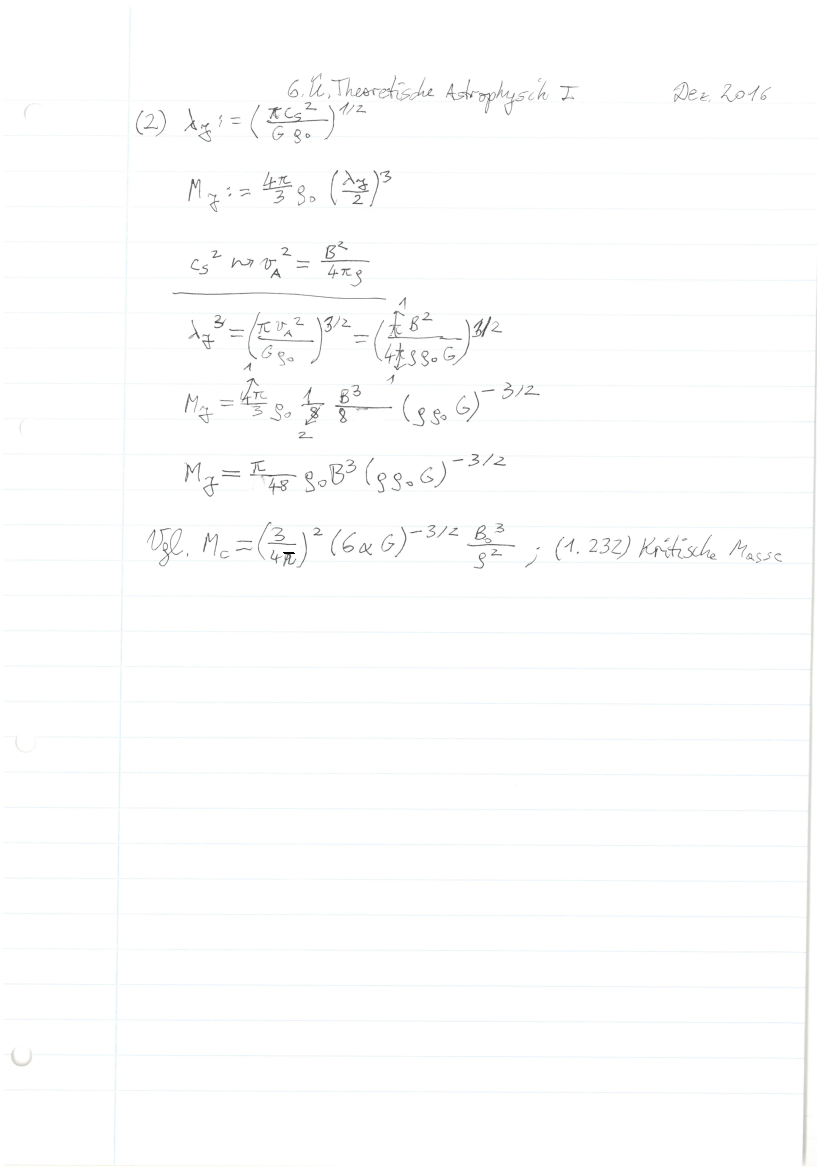 6. Ü. Theoretische Astrophysik I Dez. 2016
(2) λ_J := (π c_s² / G ρ₀)^{1/2}
M_J := 4π/3 ρ₀ (λ_J/2)³
c_s² ⇝ v_A² = B² / 4πρ
λ_J³ = (π v_A² / G ρ₀)^{3/2} = (π B² / 4π ρ ρ₀ G)^{3/2} 1 1
M_J = 4π/3 ρ₀ 1/8 B³/8 (ρ ρ₀ G)^{-3/2} 1 2
M_J = π/48 ρ₀ B³ (ρ ρ₀ G)^{-3/2}
Vgl. M_c = (3/4π)² (6 α G)^{-3/2} B₀³/ρ² ; (1.232) Kritische Masse